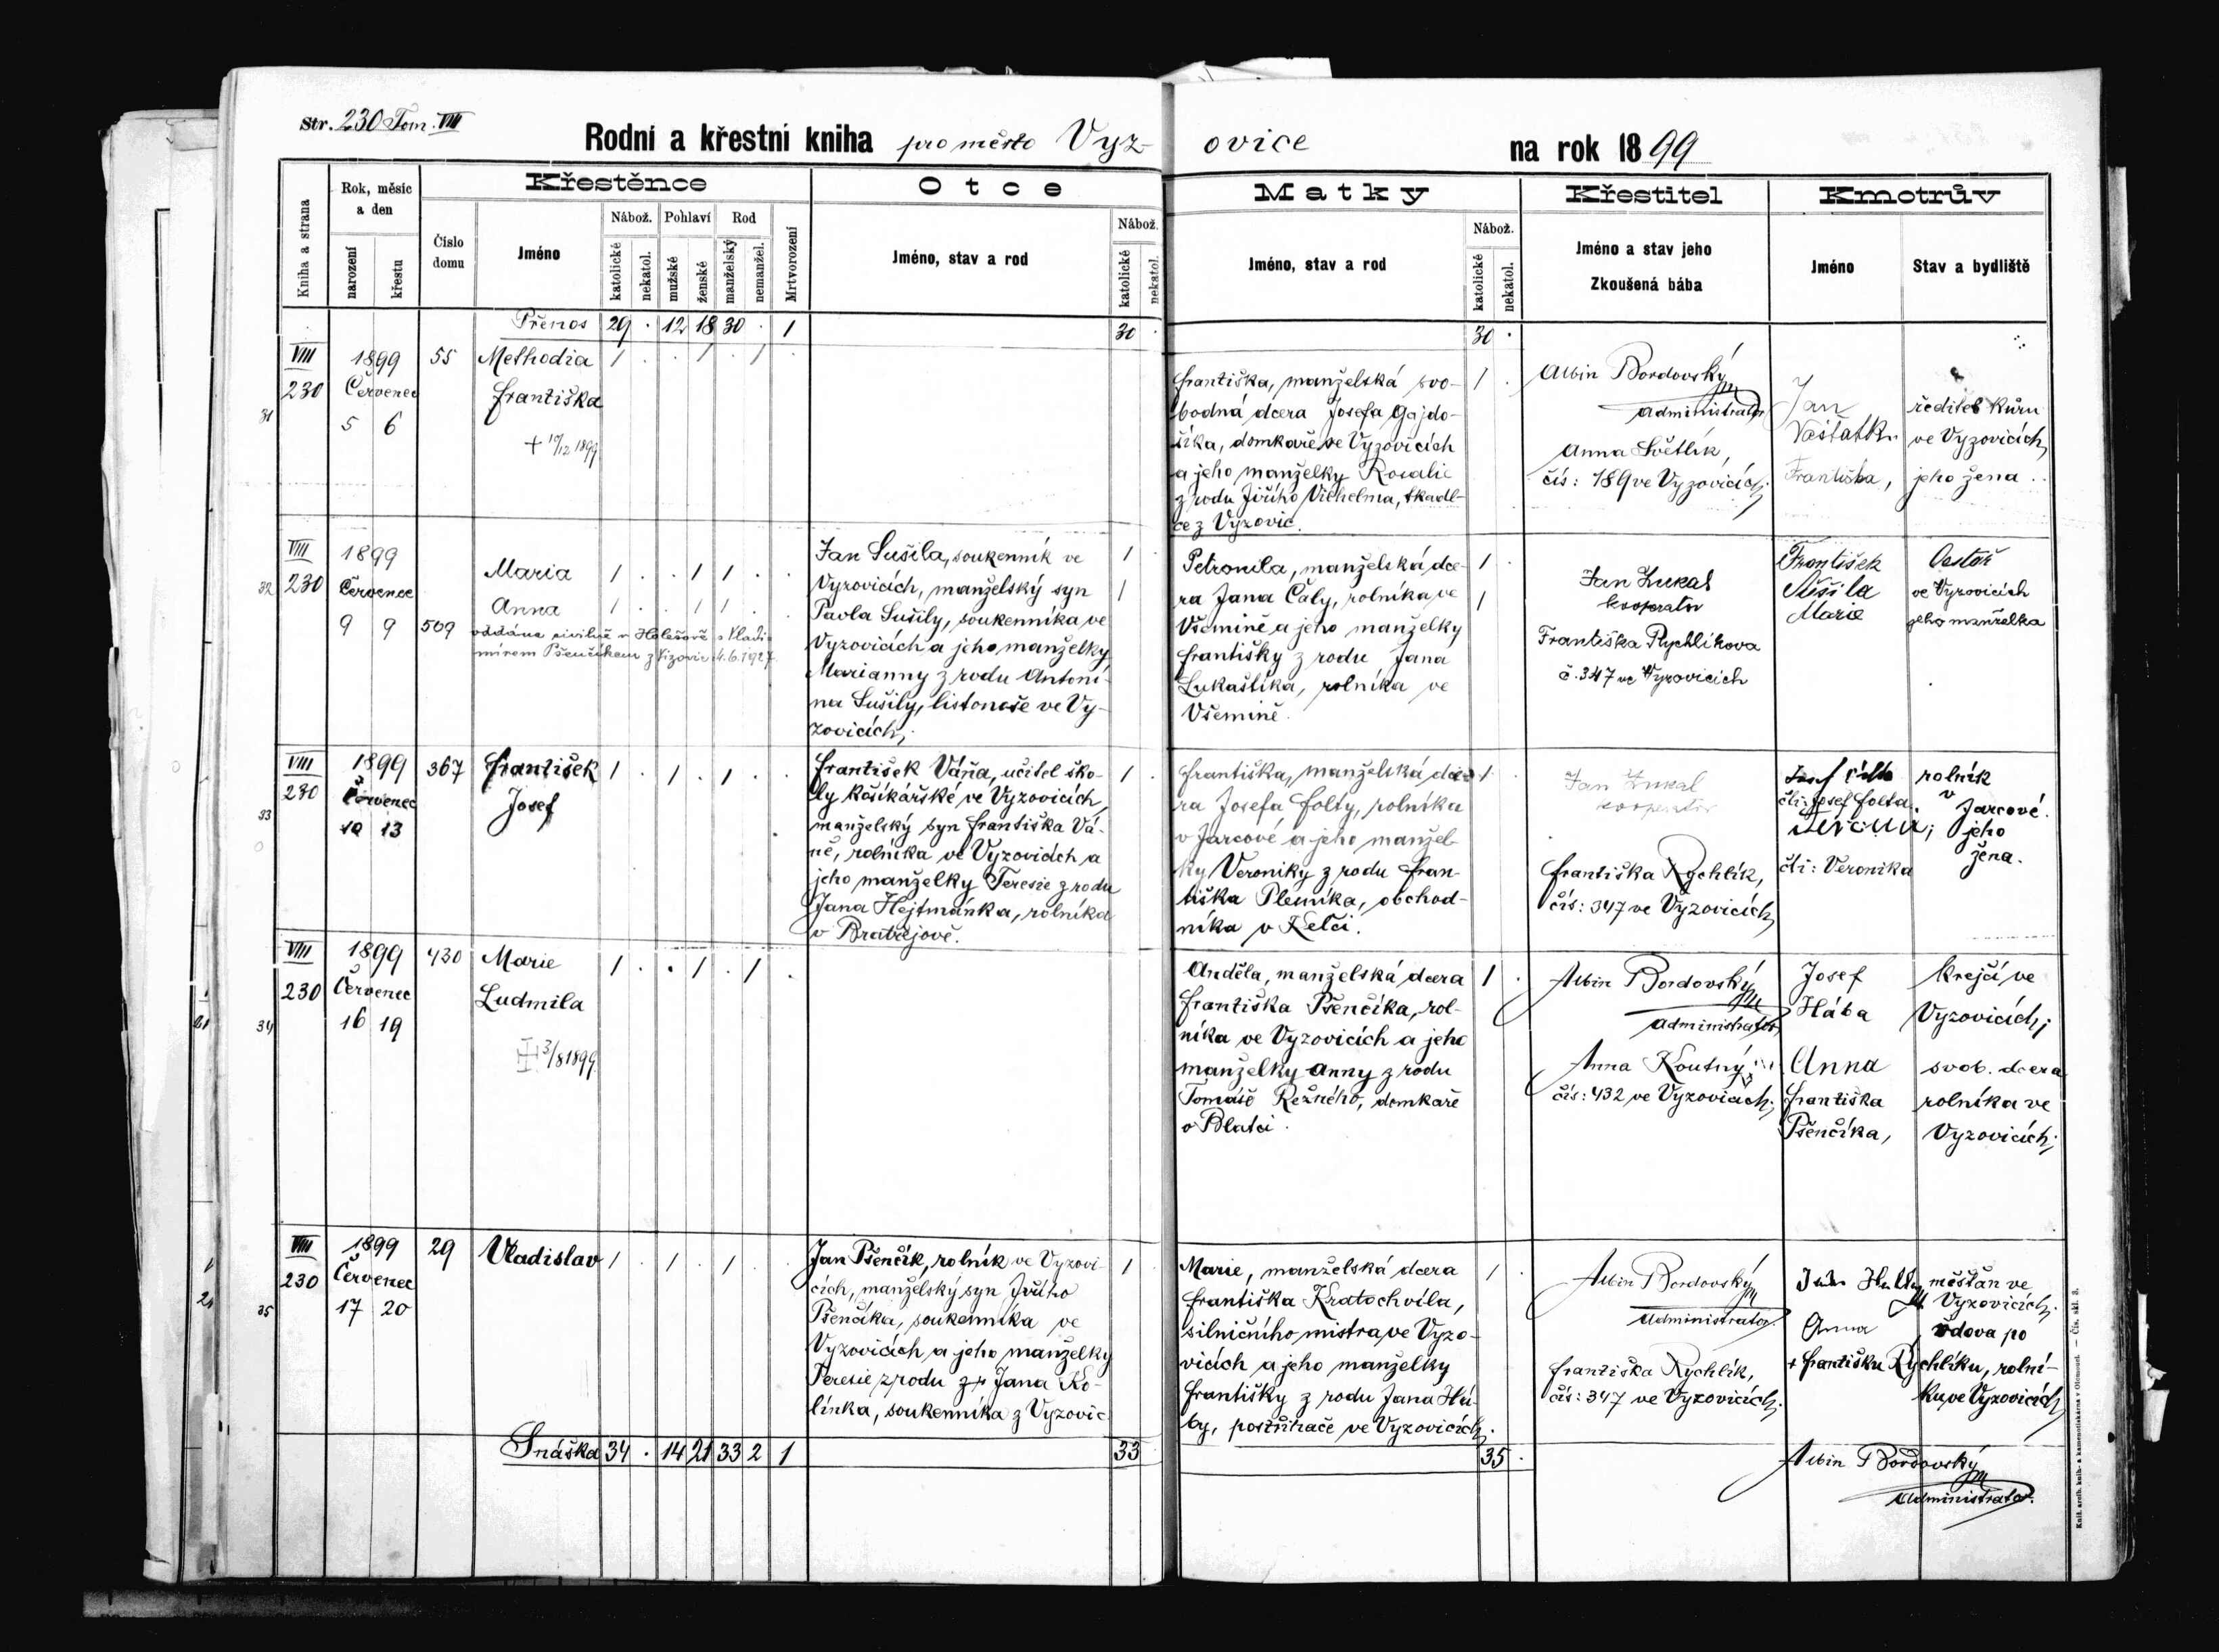 Str. 230 Tom. VIII
Rodní a křestní kniha pro město Vyz-
ovice
na rok 1899
Kniha a strana
Rok, měsíc
a den
narození
křestu
Křestěnce
Číslo
domu
Jméno
Nábož.
katolické
nekatol.
Pohlaví
mužské
ženské
Rod
manželský
nemanžel.
Mrtvorození
Otce
Jméno, stav a rod
Nábož.
katolické
nekatol.
Matky
Jméno, stav a rod
Nábož.
katolické
nekátol.
Křestitel
Jméno a stav jeho
Zkoušená bába
Kmotrův
Jméno
Stav a bydliště
Přenos 29 . 12 18 30 . 1
30 .
30 .
31
VIII
230
1899
Červenec
5 6
55
Methodia
Františka
+ 10/12 1899
1 . . 1 . 1 .
Františka, manželská svo-
bodná dcera Josefa Gajdo-
šíka, domkaře ve Vyzovicích
a jeho manželky Rosalie
z rodu Jiřího Vilhelma, tkadl-
ce z Vyzovic.
1 .
Albin Bordovský
administrator
Anna Světlík,
čís: 189 ve Vyzovicích;
Jan
Františka,
ředitel kůru
ve Vyzovicích,
jeho žena.
32
VIII
230
1899
Červenec
9 9
509
Maria
Anna
1 . . 1 1 . .
1 . . 1 1 . .
oddána civilně v Holešově s Vladi-
mírem Pšenčíkem z Vizovic 4.6.1927.
Jan Sušila, soukenník ve
Vyzovicích, manželský syn
Pavla Sušily, soukenníka ve
Vyzovicích a jeho manželky
Marianny z rodu Antoní-
na Sušily, listonoše ve Vy-
zovicích;
1 .
1
Petronila, manželská dce-
ra Jana Čaly, rolníka ve
Všemině a jeho manželky
Františky z rodu Jana
Lukaštíka, rolníka ve
Všemině.
1 .
1
Jan Lukal
kooperator
Františka Rychlíkova
č. 347 ve Vyzovicích
František
Sušila
Marie
ve Vyzovicích
jeho manželka
33
VIII
230
1899
Červenec
10 13
367
František
Josef
1 . 1 . 1 . .
František Váňa, učitel ško-
ly košikářské ve Vyzovicích,
manželský syn Františka Vá-
ně, rolníka ve Vyzovicích a
jeho manželky Teresie z rodu
Jana Hejtmánka, rolníka
v Bratřejově.
1 .
Františka, manželská dce-
ra Josefa Folty, rolníka
v Jarcové a jeho manžel-
ky Veroniky z rodu Fran-
tiška Plesníka, obchod-
níka v Kelči.
1 .
Jan Lukal
kooperator
Františka Rychlík,
čís: 347 ve Vyzovicích,
čti: Josef Folta.
čti: Veronika
rolník
v
Jarcové.
jeho
žena.
34
VIII
230
1899
Červenec
16 19
430
Marie
Ludmila
3/8 1899
1 . . 1 . 1 .
Anděla, manželská dcera
Františka Pšenčíka, rol-
níka ve Vyzovicích a jeho
manželky Anny z rodu
Tomáše Režného, domkaře
v Blatci.
1 .
Albin Bordovský
administrator
Anna Koutný
čís: 432 ve Vyzovicích;
Josef
Hába
Anna
Františka
Pšenčíka,
krejčí ve
Vyzovicích;
svob. dcera
rolníka ve
Vyzovicích;
35
VIII
230
1899
Červenec
17 20
29
Vladislav
1 . 1 . 1 . .
Jan Pšenčík, rolník ve Vyzovi-
cích, manželský syn Jiřího
Pšenčíka, soukenníka ve
Vyzovicích a jeho manželky
Teresie z rodu Jana Ko-
línka, soukenníka z Vyzovic
1 .
Marie, manželská dcera
Františka Kratochvíla,
silničního mistra ve Vyzo-
vicích a jeho manželky
Františky z rodu Jana Hú-
by, postřihače ve Vyzovicích.
1 .
Albin Bordovský
administrator.
Františka Rychlík,
čís: 347 ve Vyzovicích.
Anna
+ Františku Rychlíku, rolní-
ku ve Vyzovicích
měšťan ve
Vyzovicích.
vdova po
Snáška 34 . 14 21 33 2 1
33
35 .
Albin Bordovský
administrator.